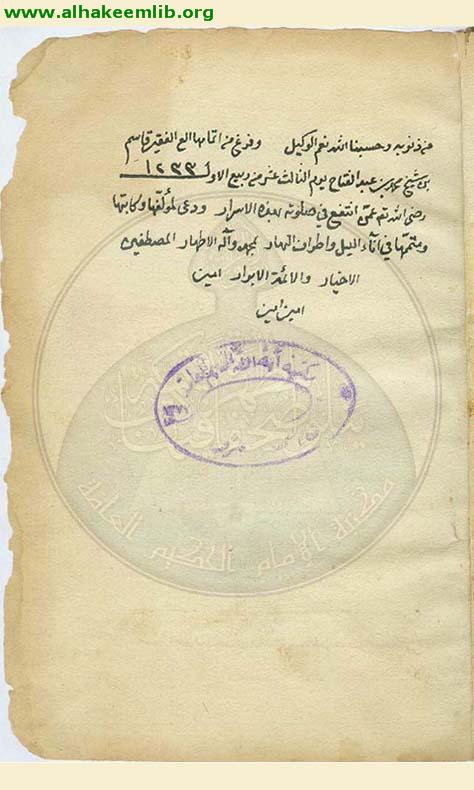 www.alhakeemlib.org
من ذنوبه وحسبنا الله نعم الوكيل وفرغ من اتمامها الفقير قاسم
بن شيخ محمد بن عبد الفتاح يوم الثالث عشر من ربيع الاول ١٢٣٣
رضى الله تع عمن انتفع في صلوته بهذه الاسرار ودعى لمؤلفها وكاتبها
ومتممها في آناء الليل واطراف النهار بمحمد وآله الاطهار المصطفين
الاخيار والائمة الابرار امين
امين امين
مكتبة آية الله
مكتبة الإمام الحكيم العامة